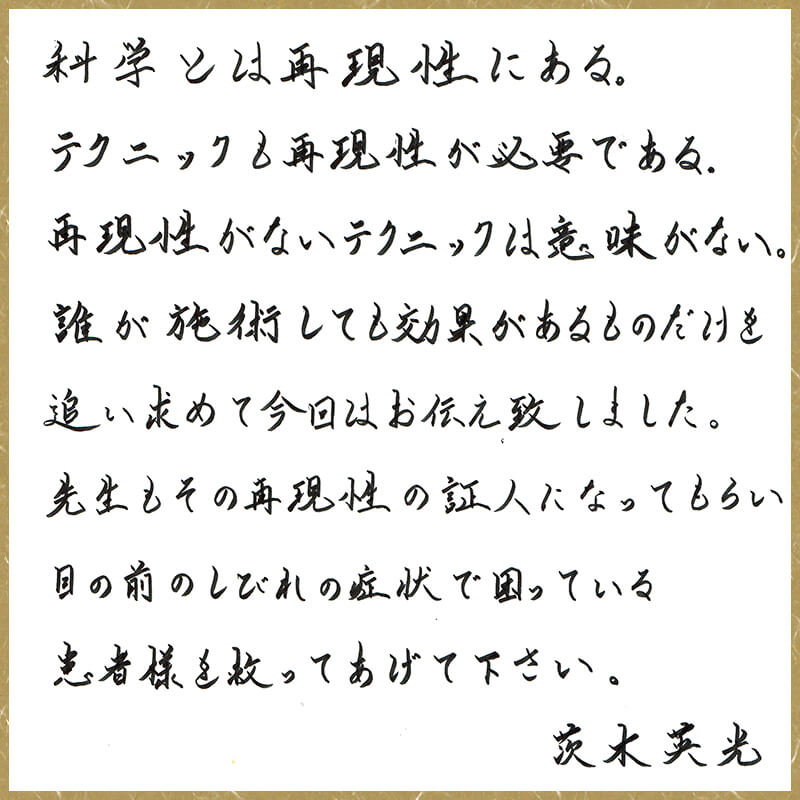 科学とは再現性にある。
テクニックも再現性が必要である。
再現性がないテクニックは意味がない。
誰が施術しても効果があるものだけを
追い求めて今回はお伝え致しました。
先生もその再現性の証人になってもらい
目の前のしびれの症状で困っている
患者様を救ってあげて下さい。
茨木英光